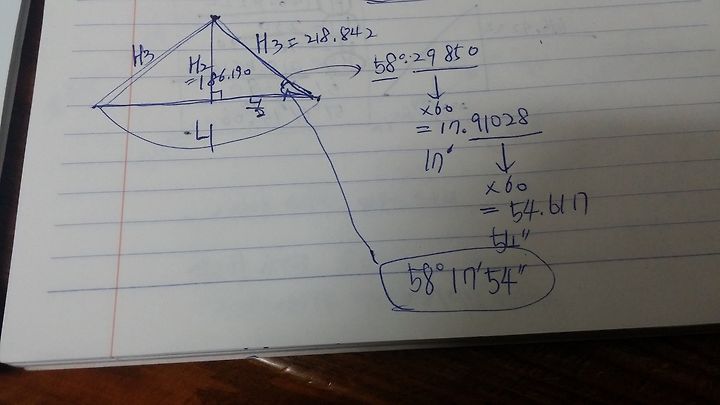 H3
H2
=186.190
H3=218.842
L/2
L
58°.29850
×60
=17.91028
17′
×60
=54.617
54″
58°17′54″